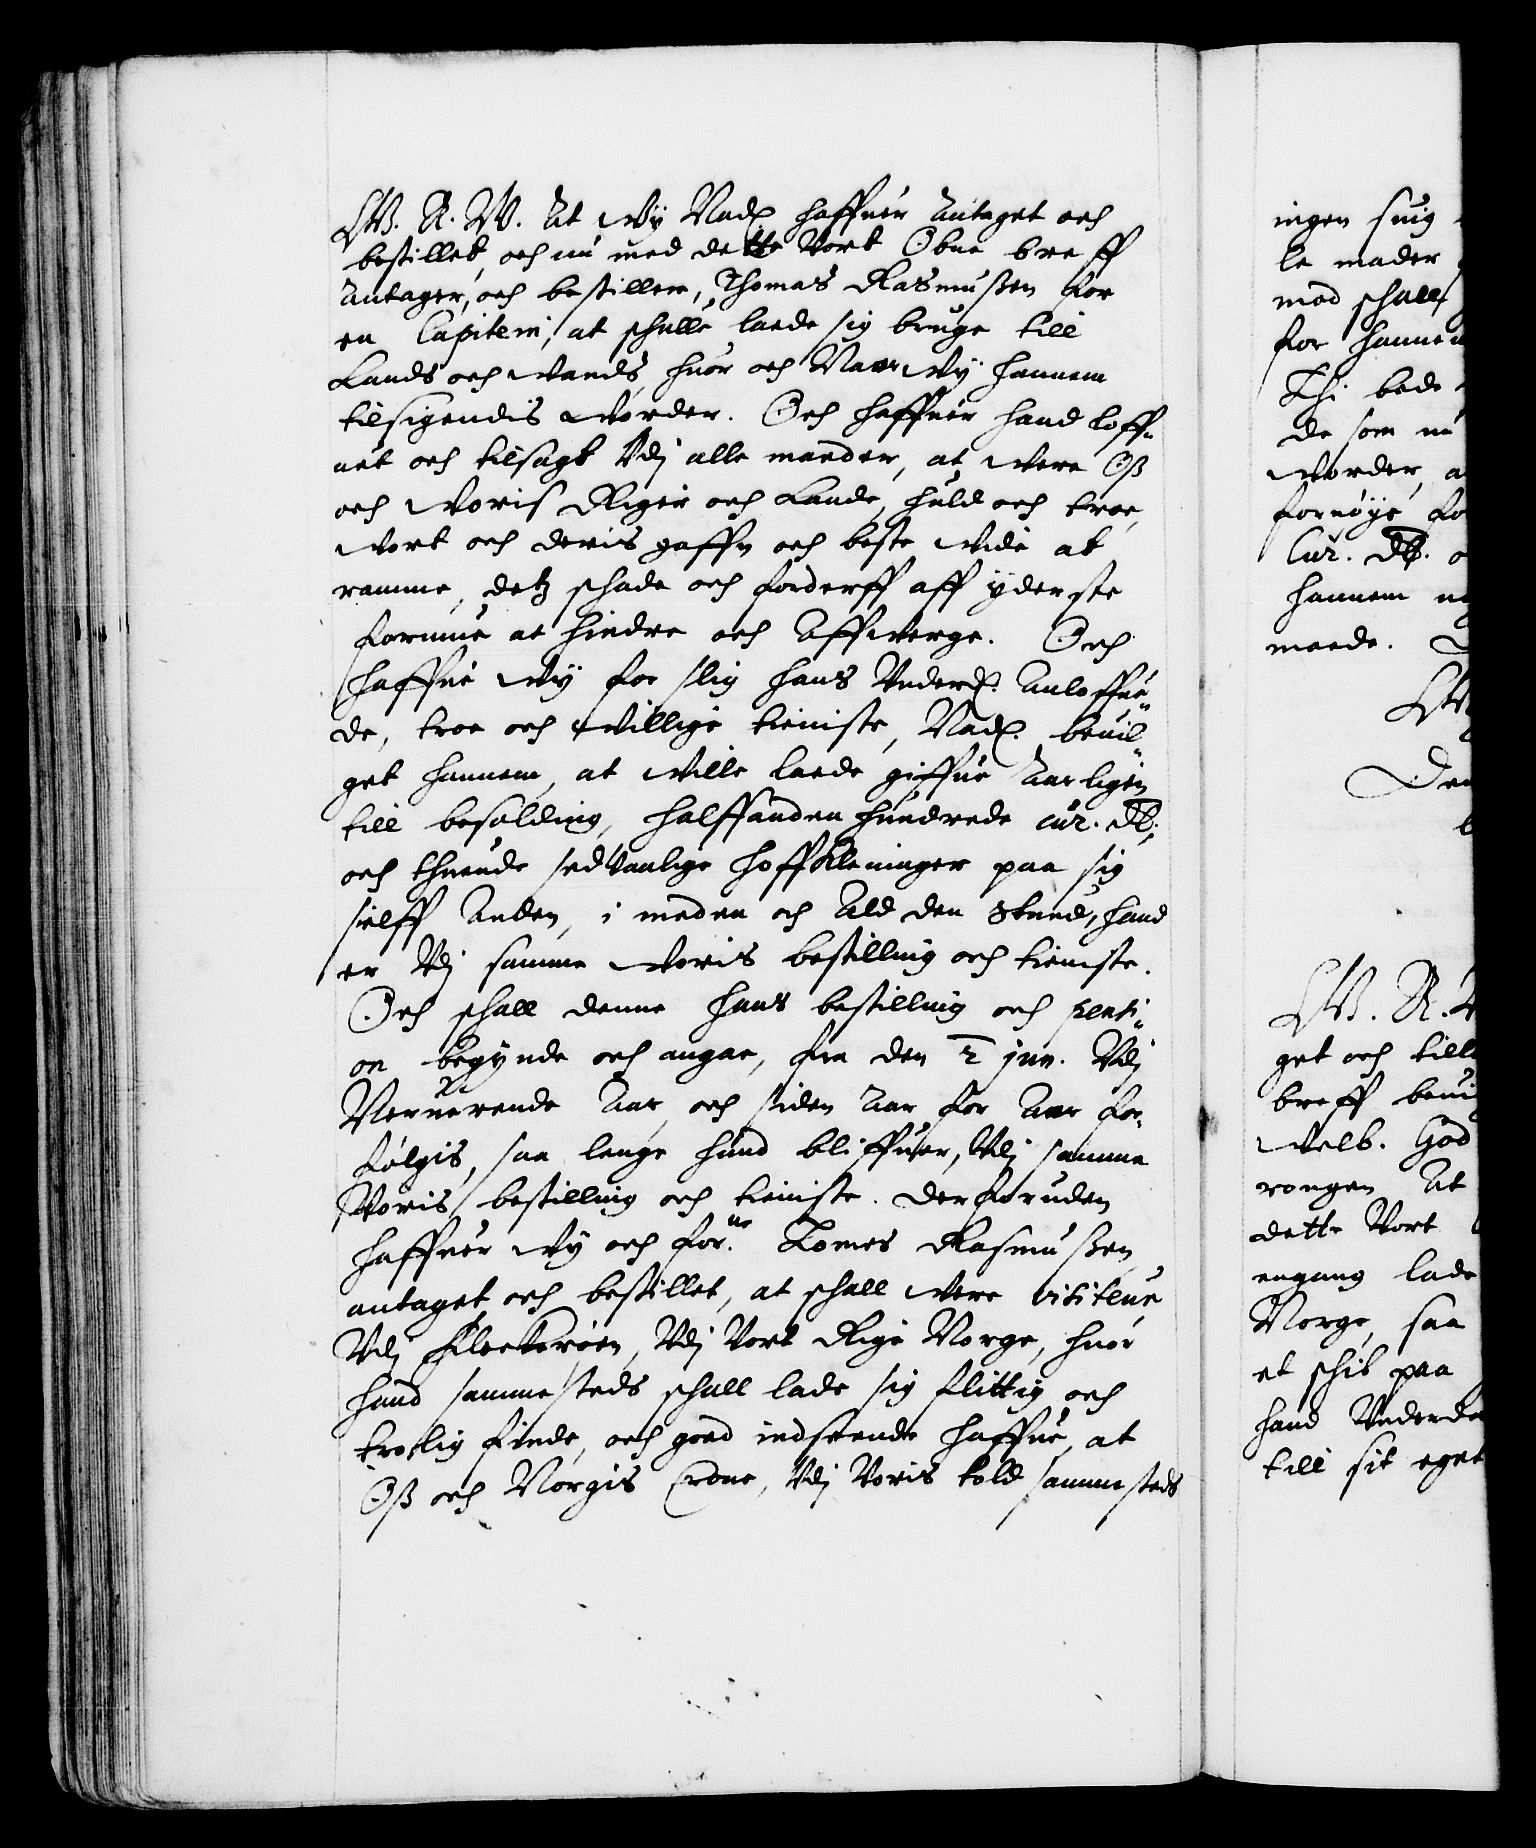 W. A. W. At Wÿ Nad. haffuer Antaget och
bestillet, och nu med dette Vort Obne breff
Antager, och bestiller, Thomas Rasmußen for
en Capitein, at schulle laede sig bruge till
Lands och Vands, huor och Naar Wÿ hannem
tilsigendis worder. Och haffuer hand loff„
uet och tilsagt Vdj alle maader, at were Oß
och Woris Riger och Lande, huld och troe,
Wort och deris gaffn och beste wide at
ramme, detz schade och forderff aff ÿderste
formue at hindre och Affwerge. Och
haffue Wÿ for slig hans Underd. Anloffue„
de, troe och willige tieniste, Nad. beuil„
get hannem, at wille laede giffue Aarligen
till besolding, halffanden hundrede cur. dl.,
och thuende sedtvanlige hoffKleninger paa sig
sielff Anden, i meden och Ald den Stund, hand
er Vdj samme Woris bestilling och tieniste.
Och schall denne hans bestilling och penti„
on begÿnde och angae, fra den 2 jan. Vdj
Nerverende Aar, och siden Aar for Aar for„
følgis, saa lenge hand bliffuer, Vdj samme
Voris bestilling och tieniste. Derforuden
haffuer Wÿ och for.ne Tomes Rasmußen
antaget och bestillet, at schall were visiteur
Vdj Fleckerøen, Vdj Vort Rige Norge, huor
hand sammesteds schall lade sig flittig och
trolig finde, och goed indseende haffue, at
Oß och Norgis Crone, Vdj Voris told sammesteds
ingen suig
le maader
mod schall
for hannem
Thi bede
de som nu
worder, a
fornøye fo
Cur. dl. o
hannem
maade.
W. A.
get och till
breff beui
Welb. God
at
dette Vort
engang lade
Norge, saa
et schib paa
hand Underda
till sit eget